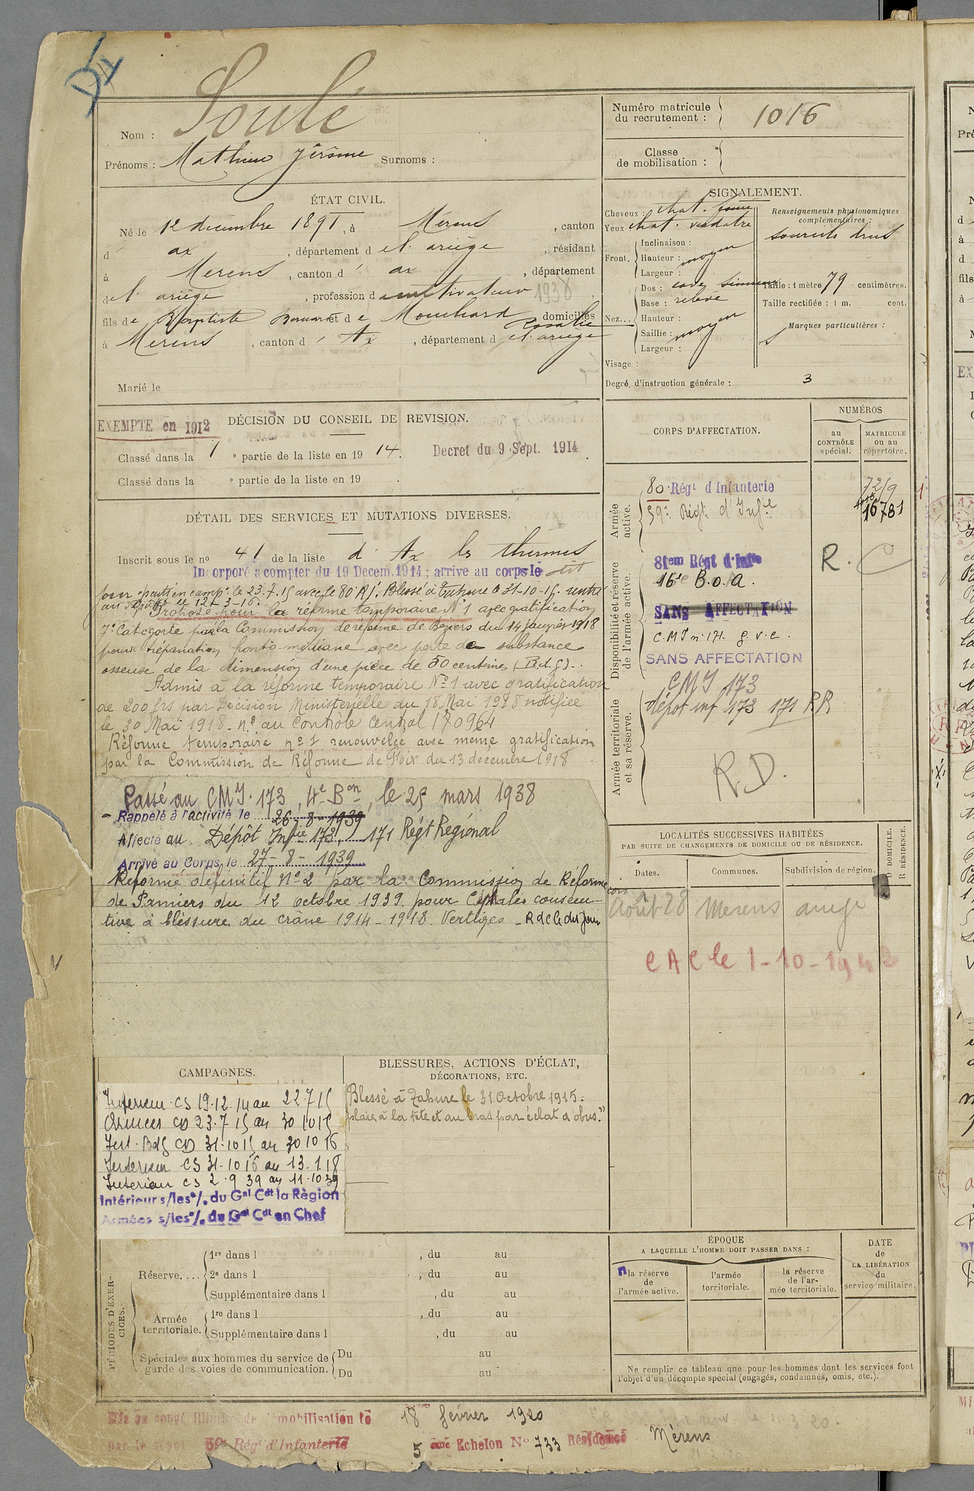 D4
Nom : Soulé
Prénoms : Mathieu Jérôme Surnoms :
Numéro matricule du recrutement : 1016
Classe de mobilisation :
ÉTAT CIVIL.
Né le 12 décembre 1891, à Mérens, canton
d ax, département d el ariège, résidant
à Merens, canton d ax, département
de l' ariège, profession de cultivateur 1938
fils de Baptiste Bernard et de Mouchard Rosalie domiciliés
à Merens, canton d' Ax, département d el ariège
Marié le
SIGNALEMENT.
Cheveux chat. foncé
Yeux chat. verdâtre
Front. Inclinaison :
Hauteur : moyen
Largeur :
Nez... Dos : cave sinueux
Base : relevé
Hauteur :
Saillie : moyen
Largeur :
Visage :
Renseignements physionomiques complémentaires :
sourcils drus
Taille : 1 mètre 79 centimètres.
Taille rectifiée : 1 m. cent.
Marques particulières :
Degré d'instruction générale : 3
EXEMPTE en 1912 DÉCISION DU CONSEIL DE REVISION.
Classé dans la 1 e partie de la liste en 19 14. Decret du 9 Sept. 1914
Classé dans la e partie de la liste en 19
DÉTAIL DES SERVICES ET MUTATIONS DIVERSES.
Inscrit sous le n° 41 de la liste d' Ax les thermes
Incorporé à compter du 19 Decem. 1914 ; arrive au corps le dit
jour parti en camp. le 23.7.15 avec le 80 R I. Blessé à Tahure le 31-10-15. rentré
au dépôt le 12-3-16. Proposé pour la réforme temporaire N°1 avec gratification
7e Categorie par la Commission de réforme de Béziers du 14 Janvier 1918
pour trépanation fronto médiane avec perte de substance
osseuse de la dimension d'une pièce de 50 centime
Admis à la réforme temporaire N°1 avec gratification
de 200 frs par Décision Ministérielle du 18 Mai 1918 notifiée
le 30 Mai 1918. n° au Contrôle Central 170964
Réforme temporaire n°1 renouvelée avec même gratification
par la Commission de Réforme de Foix du 13 decembre 1918
Passé au CMI. 173, 4e Bon, le 25 mars 1938
Rappelé à l'activité le 26-8-1939
Affecté au Dépôt Inf 173 171 Régt Régional
Arrivé au Corps le 27-8-1939
Réformé définitif N°2 par la Commission de Réforme
de Pamiers du 12 octobre 1939 pour Céphalée consécu-
tive à blessure du crâne 1914-1918. Vertiges
CORPS D'AFFECTATION.
NUMÉROS
au CONTRÔLE spécial.
MATRICULE ou au répertoire.
Armée active.
80 Régt d'Infanterie 7219
59e Régt d'Infie 16781
Disponibilité et réserve de l'armée active.
81em Régt d'Infie R. C
16e B.O.A.
SANS AFFECTATION
C.M.I n° 171. g.v.c.
SANS AFFECTATION
Armée territoriale et sa réserve.
CMI 173
dépôt inf 173 171 RR
R.D.
LOCALITÉS SUCCESSIVES HABITÉES
PAR SUITE DE CHANGEMENTS DE DOMICILE OU DE RÉSIDENCE.
Dates. Communes. Subdivision de région. D. DOMICILE. R. RÉSIDENCE.
Août 28 Merens ariège
C A C le 1-10-1942
CAMPAGNES.
Intérieur CS 19.12.14 au 22 7 15
Armées CD 23.7.15 au 30 10 15
CD 31.10.15 au 30 10 16
Intérieur CS 31.10 16 au 13.1.18
Intérieur CS 2.9.39 au 11.10.39
Intérieur s/les °/. du Gal Cdt la Région
Armées s/les °/. du Gal Cdt en Chef
BLESSURES, ACTIONS D'ÉCLAT,
DÉCORATIONS, ETC.
Blessé à Tahure le 31 Octobre 1915.
plaie à la tête et au bras par éclat d'obus."
PÉRIODES D'EXERCICES.
Réserve.... 1re dans l , du au
2e dans l , du au
Supplémentaire dans l , du au
Armée territoriale. 1re dans l , du au
Supplémentaire dans l , du au
Spéciales aux hommes du service de garde des voies de communication. Du au
Du au
ÉPOQUE
A LAQUELLE L'HOMME DOIT PASSER DANS :
la réserve de l'armée active.
l'armée territoriale.
la réserve de l'armée territoriale.
DATE de LA LIBÉRATION du service militaire.
Ne remplir ce tableau que pour les hommes dont les services font
l'objet d'un décompte spécial (engagés, condamnés, omis, etc.).
Mis en congé illimité de démobilisation le 18 février 1920
par le dépôt 59e Régt d'Infanterie 5 eme Echelon N° 733 Résidence Mérens